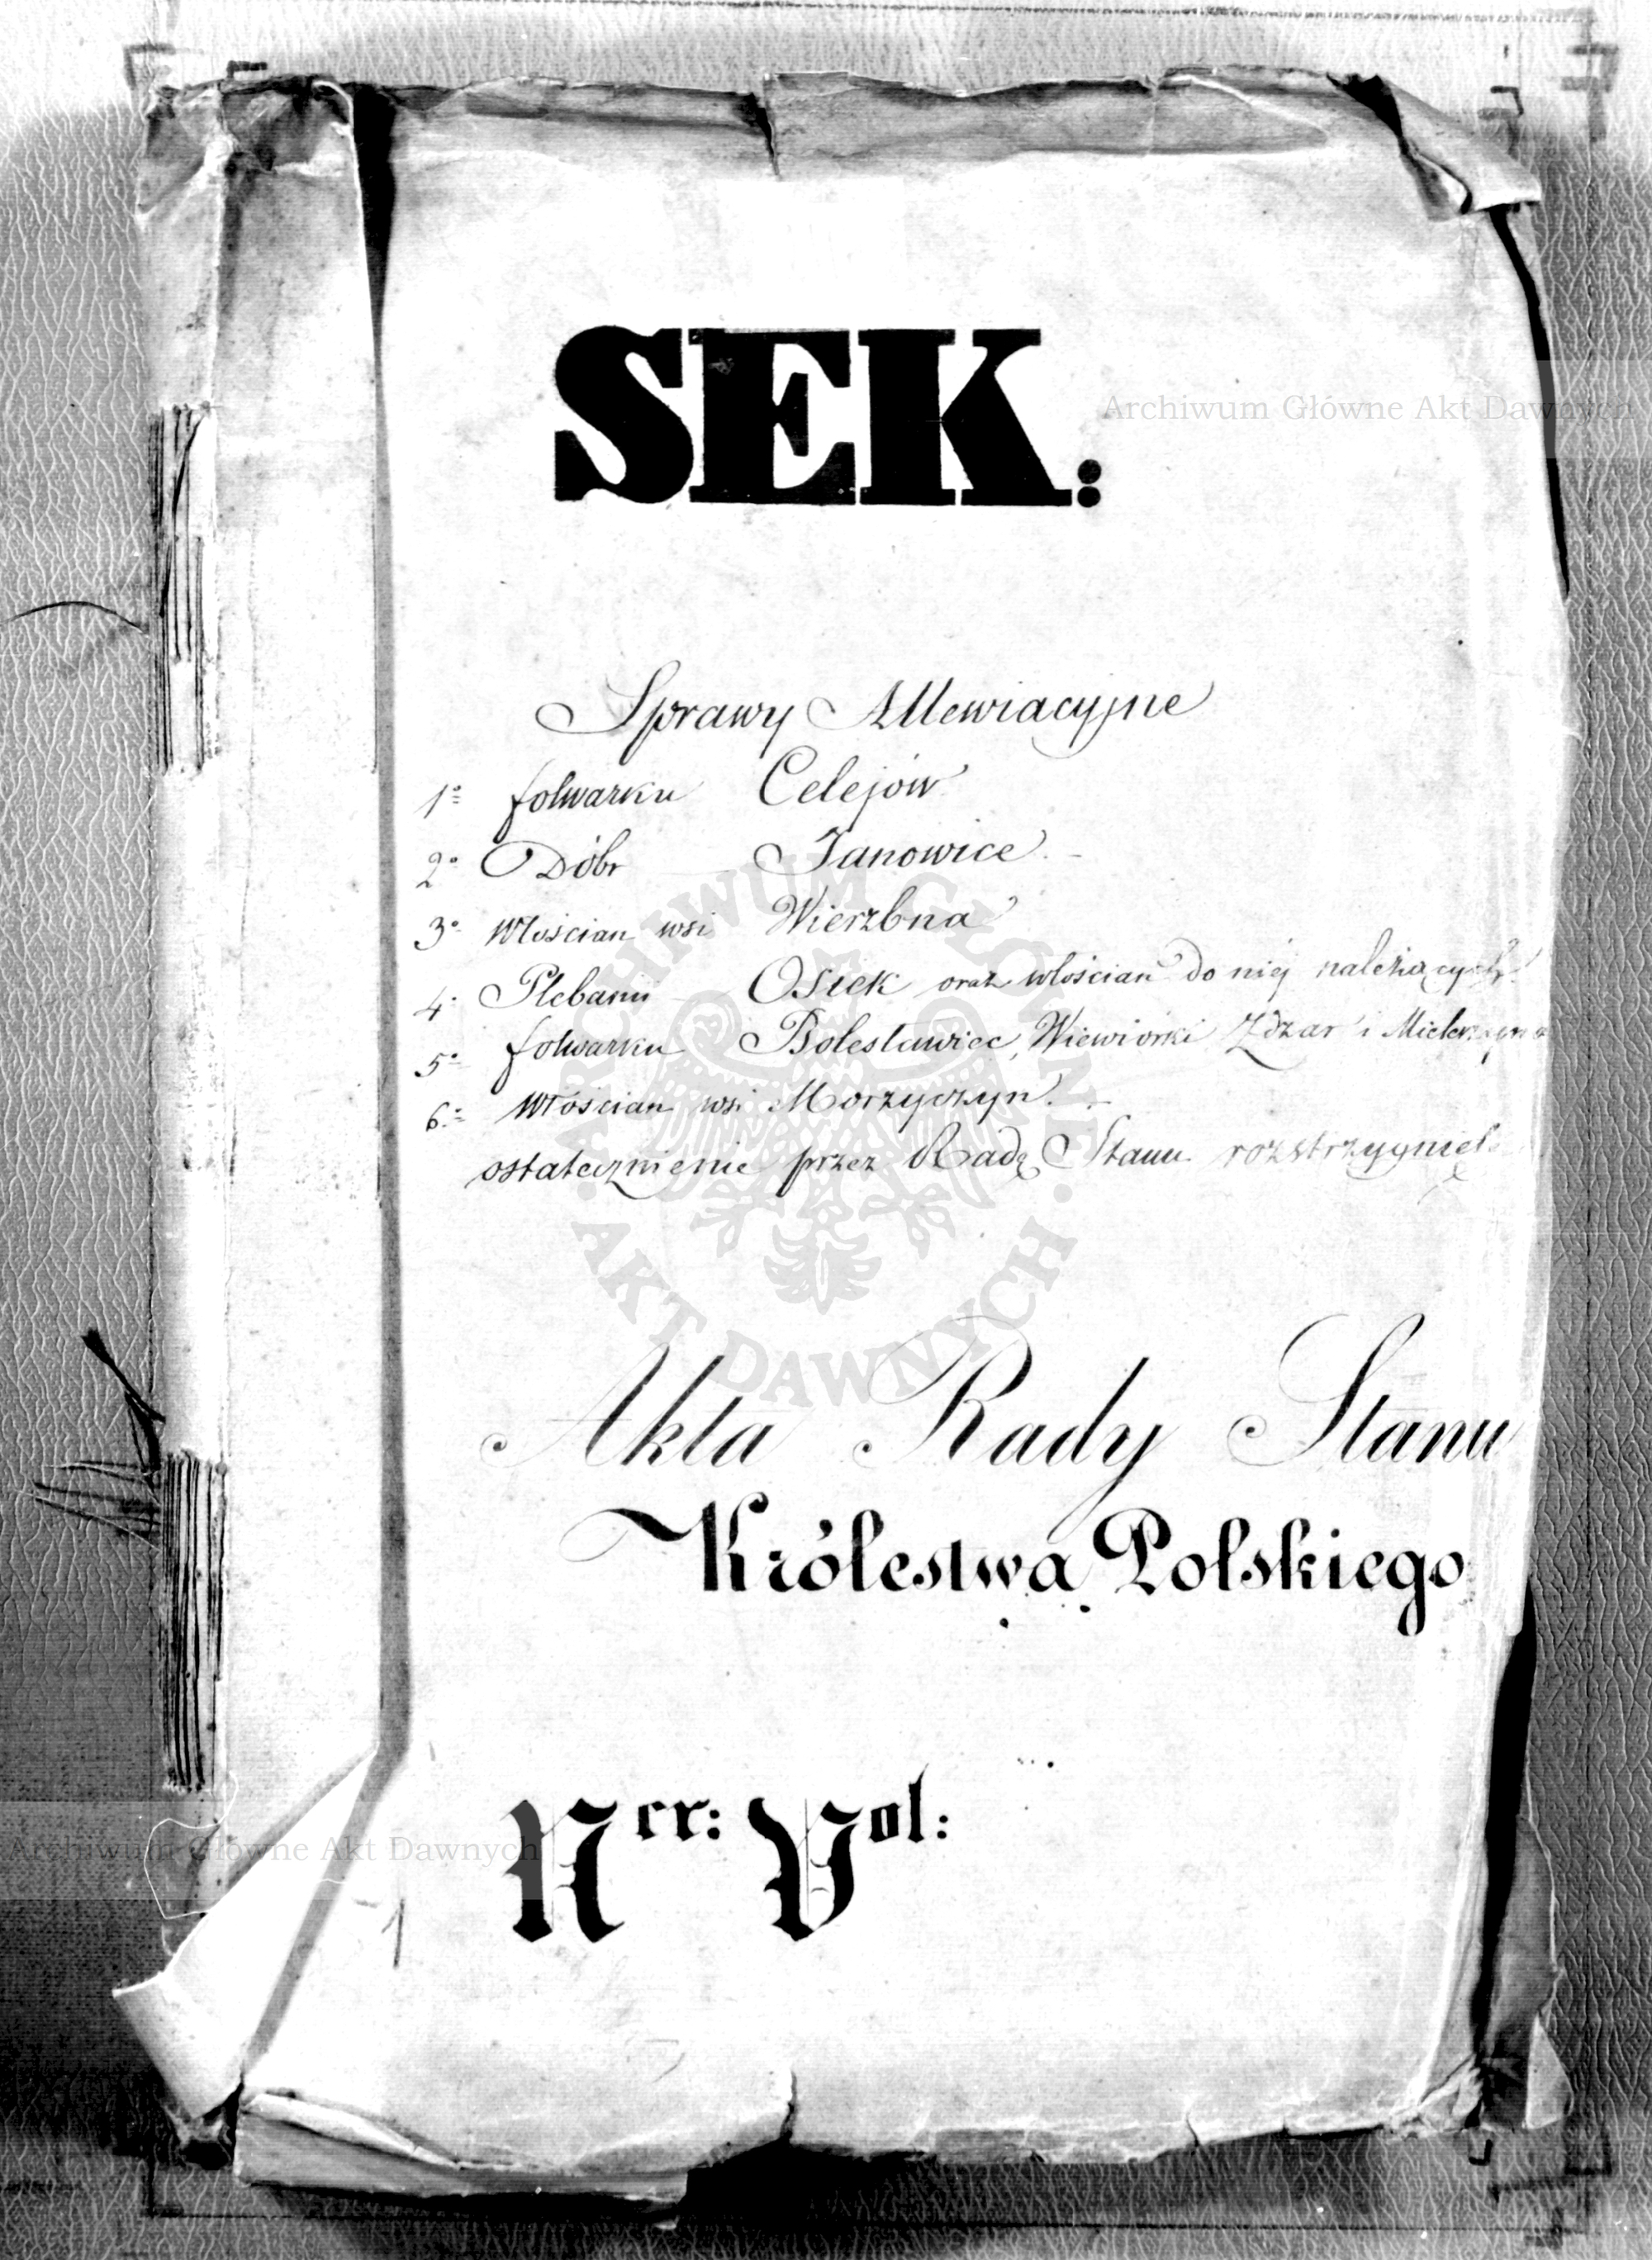 SEK:
Archiwum Główne Akt Dawnych
Sprawy Allewiacyjne
1º folwarku Celejów
2º Dóbr Janowice.
3º Włościan wsi Wierzbna
4º Plebanii Osiek oraz włościan do niej należących
5º folwarku Bolesławiec, Wiewiórki Zdżar i
6º Włościan wsi Morzyczyn.
ostatecznienie przez Radę Stanu
ARCHIWUM GŁÓWNE
AKT DAWNYCH
Akta Rady Stanu
Królestwa Polskiego
Ner: Vol:
Archiwum Główne Akt Dawnych
1